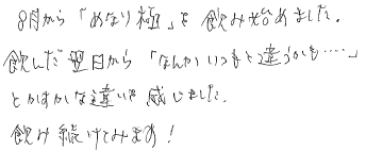 8月から「めなり極」を飲み始めました。
飲んだ翌日から「なんかいつもと違うかも……」
とかすかな違いを感じました。
飲み続けてみます!